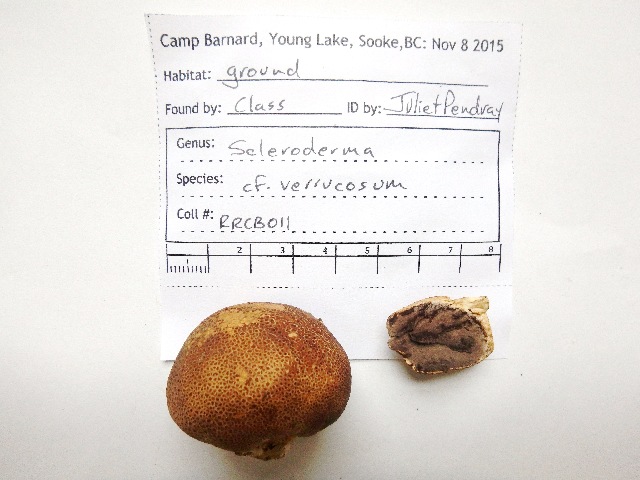 Camp Barnard, Young Lake, Sooke,BC: Nov 8 2015
Habitat: ground
Found by: Class ID by: Juliet Pendray
Genus: Scleroderma
Species: cf. verrucosum
Coll #: RRCB011
2 3 4 5 6 7 8